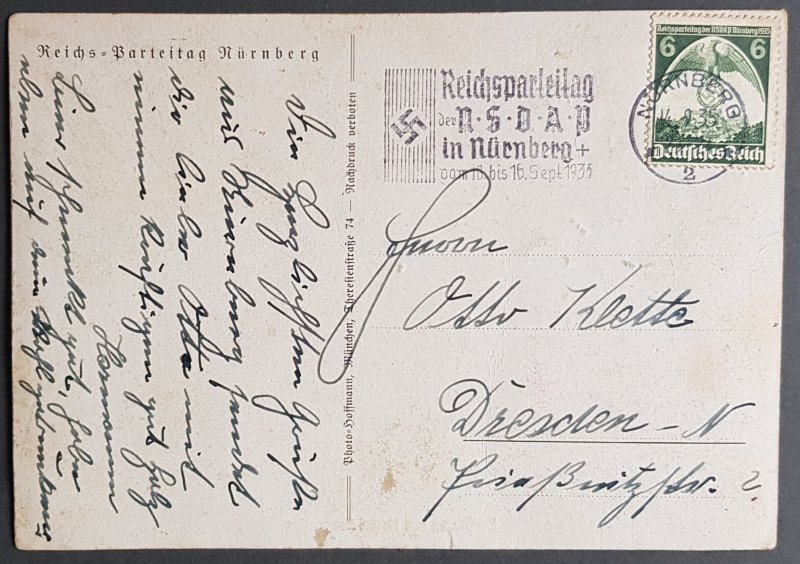 Reichs-Parteitag Nürnberg
Die herzlichsten Grüße
aus Nürnberg sendet
dir lieber Otto mit
einem kräftigen gut Holz
Hermann
Bier schmeckt gut, haben
eben auf dein Wohl getrunken
Photo-Hoffmann, München, Theresienstraße 74 — Nachdruck verboten
Reichsparteitag
der N·S·D·A·P
in Nürnberg +
vom 10. bis 16. Sept. 1935
Reichsparteitag der NSDAP Nürnberg 1935
6 6
Deutsches Reich
NÜRNBERG
14.9.35
2
Herrn
Otto Klette
Dresden-N
Prießnitzstr. 2.